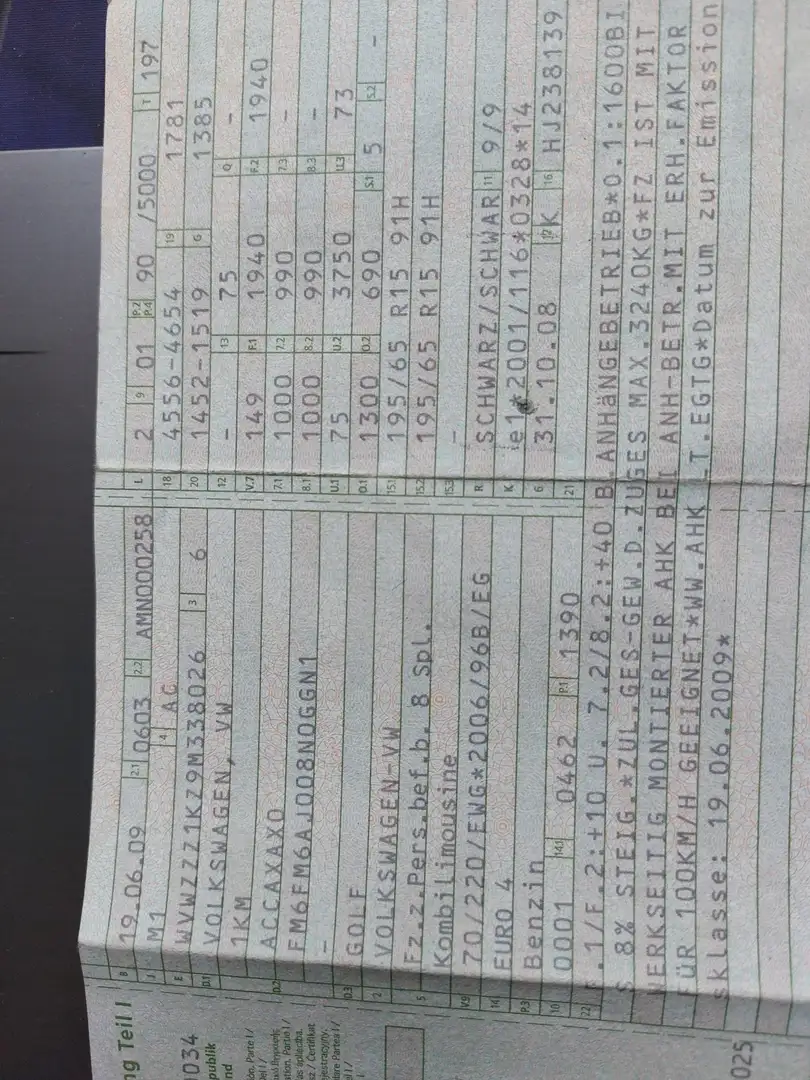 ng Teil I
0034
publik
nd
025
B 19.06.09 2.1 0603 2.2 AMN000258
J M1 4 AC
E WVWZZZ1KZ9M338026 3 6
D.1 VOLKSWAGEN, VW
1KM
D.2 ACCAXAX0
FM6FM6AJ008N0GGN1
-
D.3 GOLF
2 VOLKSWAGEN-VW
5 Fz.z.Pers.bef.b. 8 Spl.
Kombilimousine
V.9 70/220/EWG*2006/96B/EG
14 EURO 4
P.3 Benzin
10 0001 14.1 0462 P.1 1390
L 2 9 01 P.2 P.4 90 /5000 T 197
18 4556-4654 19 1781
20 1452-1519 G 1385
12 - 13 75 Q -
V.7 149 F.1 1940 F.2 1940
7.1 1000 7.2 990 7.3 -
8.1 1000 8.2 990 8.3 -
U.1 75 U.2 3750 U.3 73
O.1 1300 O.2 690 S.1 5 S.2 -
15.1 195/65 R15 91H
15.2 195/65 R15 91H
15.3 -
R SCHWARZ/SCHWAR 11 9/9
K e1*2001/116*0328*14
6 31.10.08 17 K 16 HJ238139
21
22 F.1/F.2:+10 U. 7.2/8.2:+40 B.ANHÄNGEBETRIEB*O.1:1600BI
S 8% STEIG.*ZUL.GES-GEW.D.ZUGES MAX.3240KG*FZ IST MIT
WERKSEITIG MONTIERTER AHK BEI ANH-BETR.MIT ERH.FAKTOR
FÜR 100KM/H GEEIGNET*WW.AHK LT.EGTG*Datum zur Emission
sklasse: 19.06.2009*